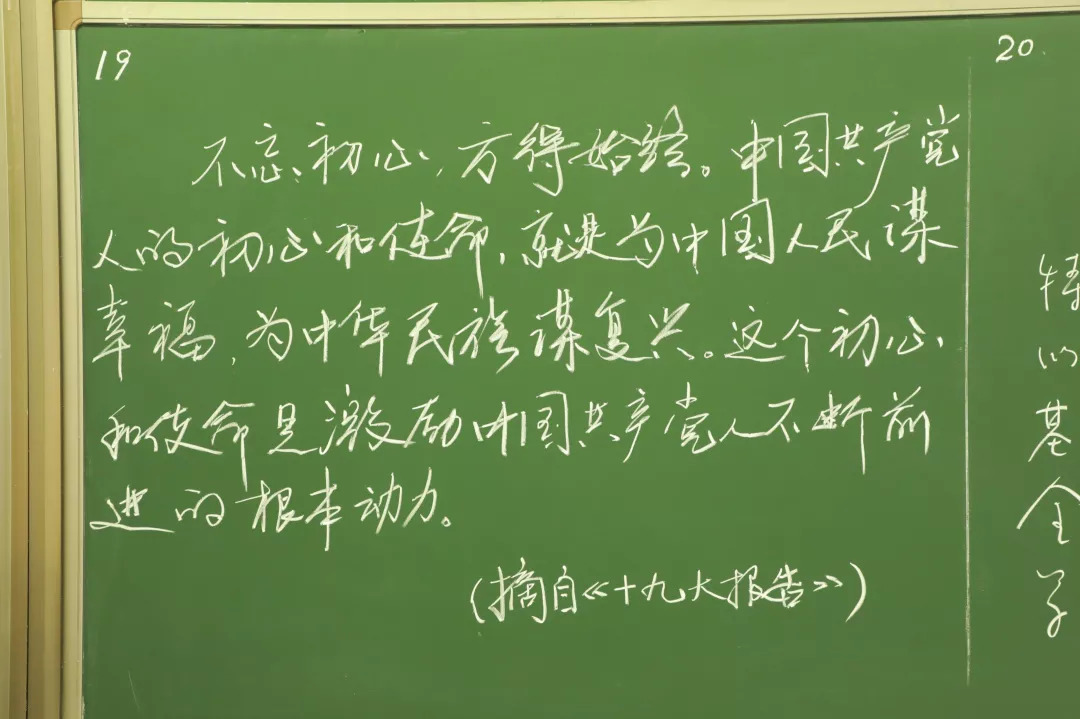 19
不忘初心,方得始终。中国共产党
人的初心和使命,就是为中国人民谋
幸福,为中华民族谋复兴。这个初心
和使命是激励中国共产党人不断前
进的根本动力。
(摘自《十九大报告》)
20.
的
基
全